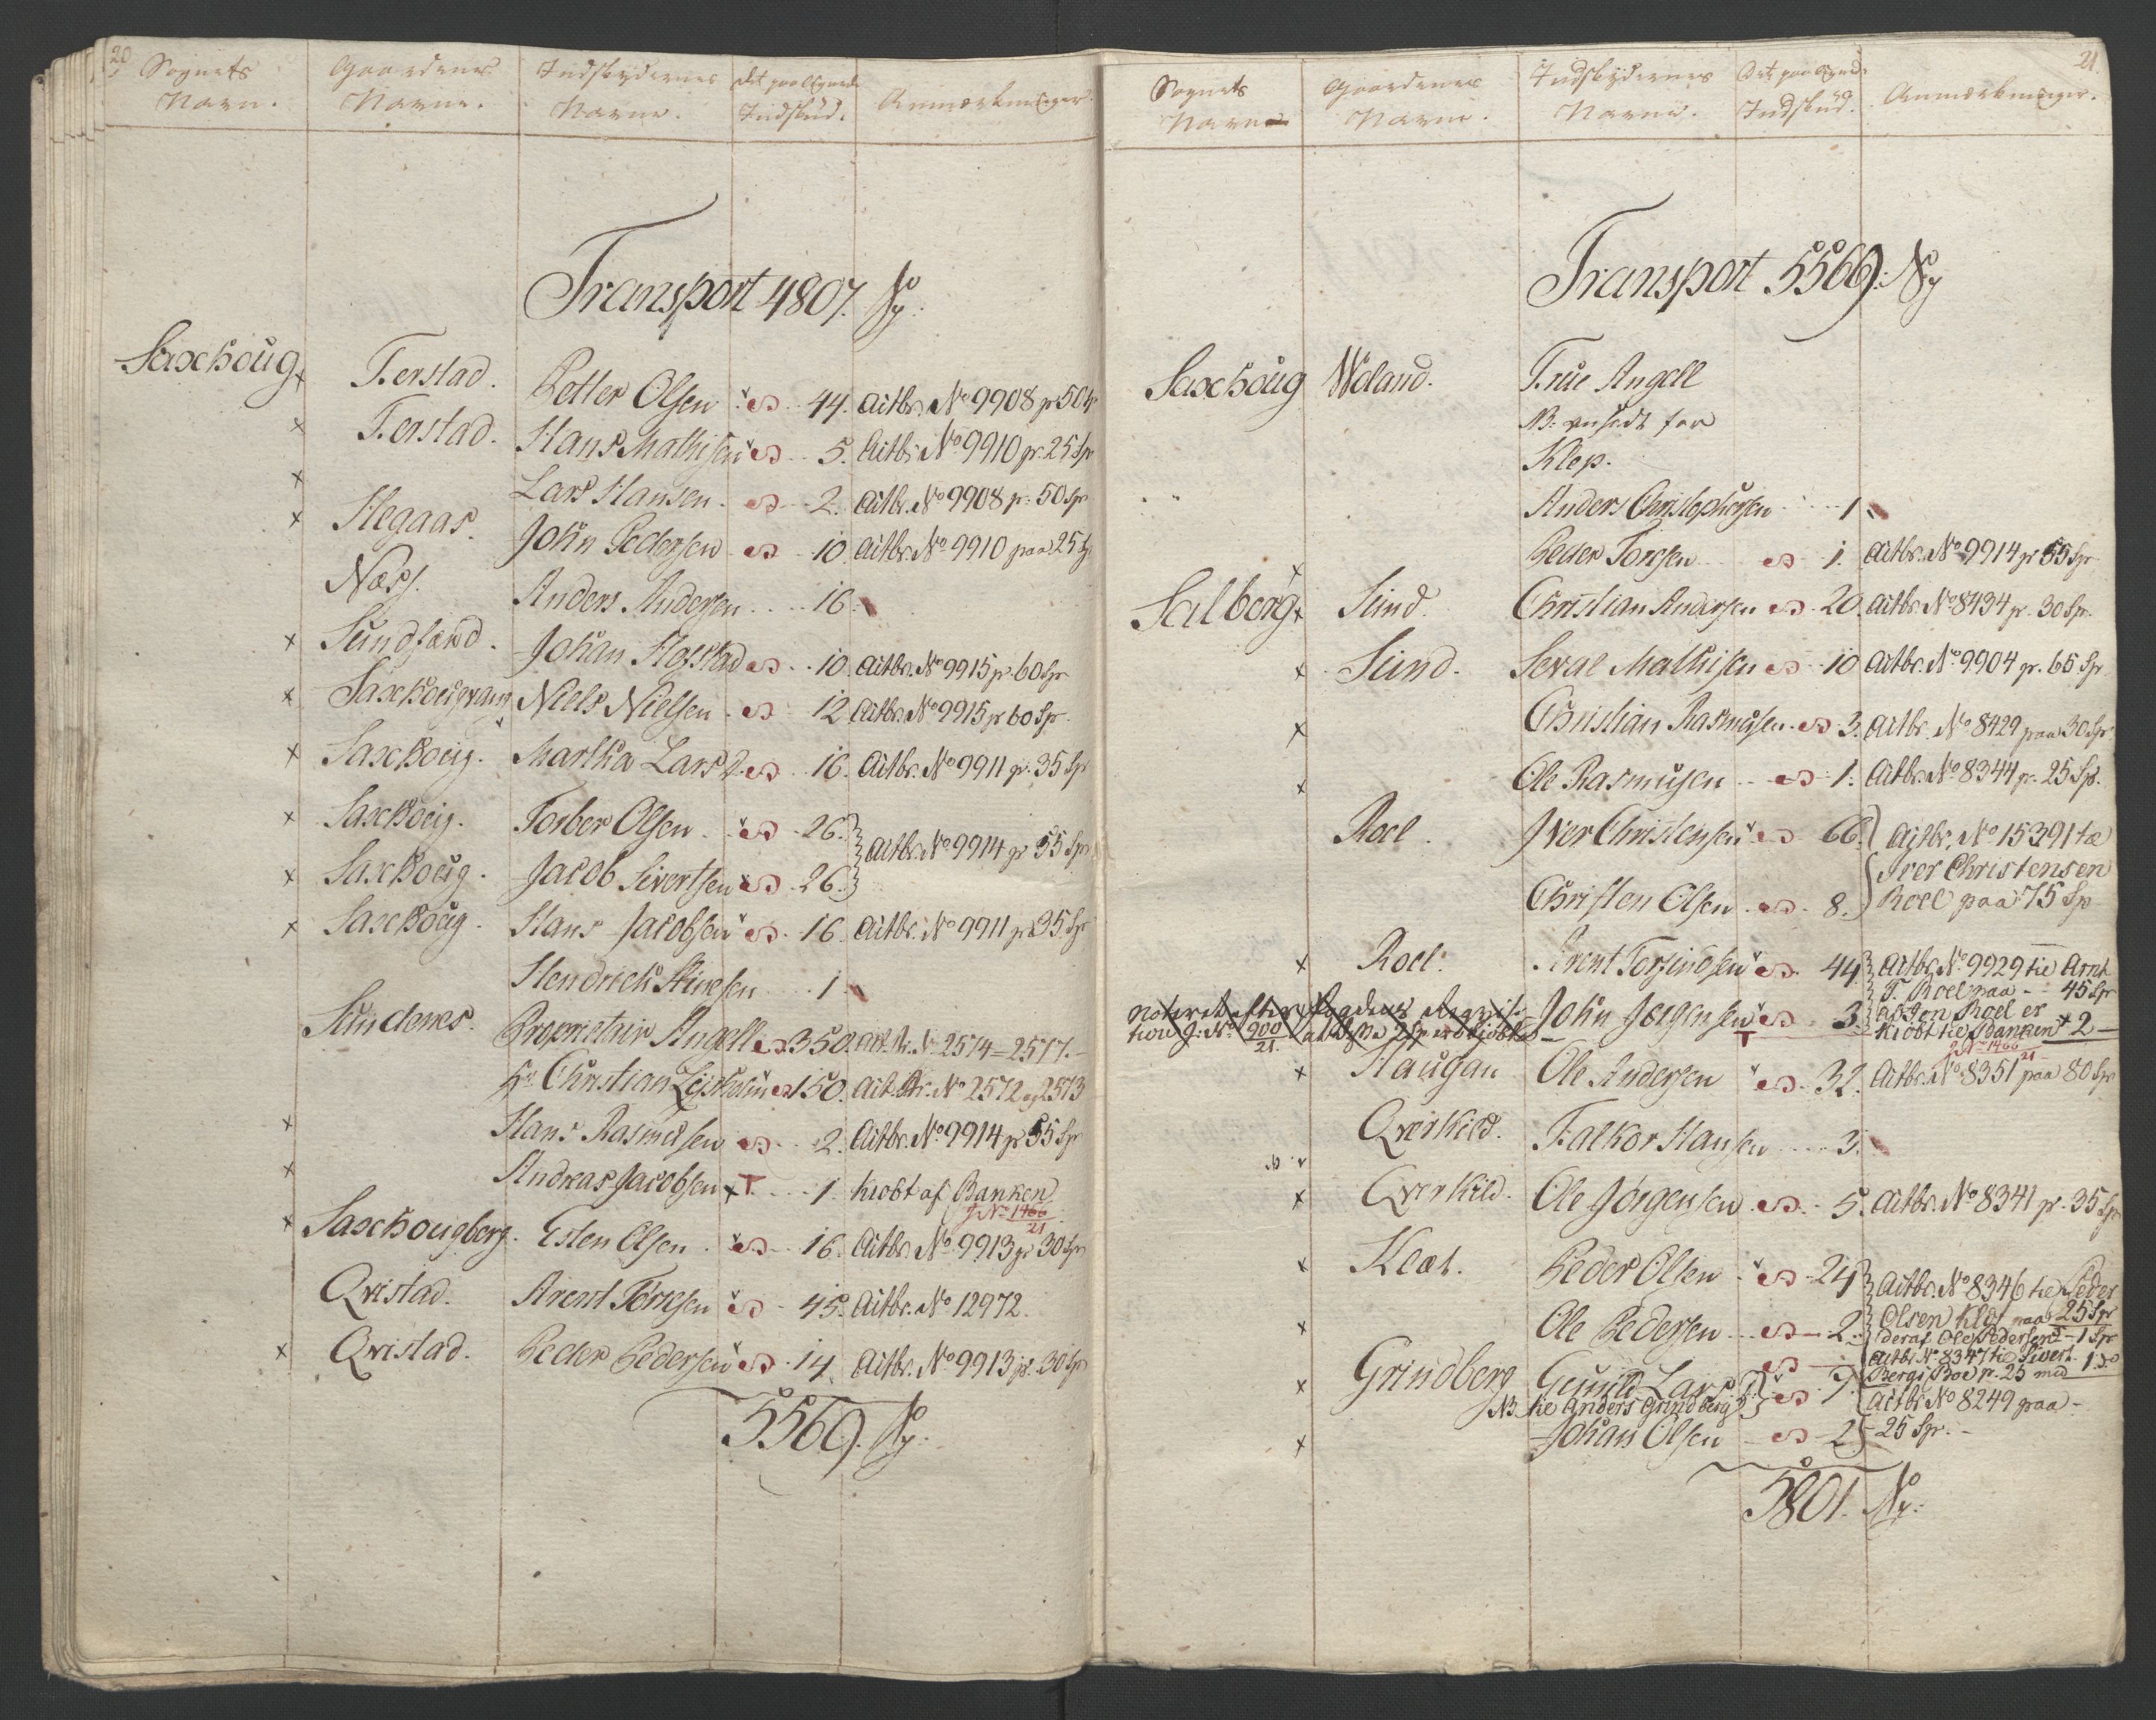 20
Sognets Navn. Gaardenes Navne. Indskydernes Navne. Det paalignede Indskud. Anmærkninger.
Transport 4807. Sp.
Saxhoug x Ferstad. Petter Olsen - 44. Actbr. No 9908 pr 50 Sp
x Ferstad. Hans Mathisen - 5. Actbr. No 9910 pr. 25 Sp
x Lars Hansen - 2. Actbr. No 9908 pr. 50 Sp
x Hegaas. John Pedersen - 10. Actbr. No 9910 paa 25 Sp
Næss. Anders Andersen 16.
x Sundfærd. Johan Hofstad 10. Actbr. No 9915 pr. 60 Sp
x Saxhougvang Niels Nielsen - 12 Actbr. No 9915 pr 60 Sp.
x Saxhoug. Martha Larsd. 16. Actbr. No 9911 pr. 35 Sp
x Saxhoug. Torber Olsen - 26. } Actbr. No 9914 pr 55 Sp
x Saxhoug. Jacob Sivertsen 26. }
x Saxhoug. Hans Jacobsen 16. Actbr. No 9911 pr 35 Sp
Hendrich 1.
Sundenes. Proprietair Angell 350. Act. Br. No 2514 = 2517.
Hr Christian 150. Act. Br. No 2572 og 2573
x Hans Rasmusen 2. Actbr. No. 9914 pr 55 Sp
x Andreas Jacobsen x T 1. Kiøbt af Banken
J No 1466/21
x Saxhougberg. Esten Olsen 16. Actbr. No 9913 pr 30 Sp
Qvistad. Arent Torresen 45. Actbr. No 12972.
x Qvistad. Peder Pedersen 14. Actbr. No 9913 pr. 30 Sp
5569. Sp.
21.
Sognets Navn Gaardenes Navne. Indskydernes Navne. Det paalignede Indskud. Anmærkninger.
Transport 5569. Sp
Saxhoug Woland. True Angell
NB. ansadt for
Klep.
Anders Christophersen 1
x Peder Torresen 1. Actbr. No 9914 pr 55 Sp
Salberg x Sund. Christian Andersen 20. Actbr. No 8434 pr. 30 Sp.
x Sund. Seval Mathisen 10 Actbr. No. 9904 pr. 65 Sp
x Christian Rasmusen 3. Actbr. No 8429 paa 30 Sp
x Ole Rasmusen 1. Actbr. No 8344 pr. 25 Sp.
Roel. Iver Christensen 66. } Actbr. No 15391 til
{ Iver Christensen
Christen Olsen 8. } Roel paa 75 Sp
x Roel. Arent 44 } Actbr. No 9929 til Arnt
} T. Roel paa - 45 Sp
Noteret efter Fogdens Reqvisi- John Jørgensen 3. T
tion J. No 900/21. Kiøbt til Banken x 2 -
J No 1466/21
x Haugan Ole Andersen 32. Actbr. No 8351 paa 80 Sp
Qverkild. Falkor Hansen 3.
x Qverkild. Ole Jørgensen 5. Actbr. No 8341 pr. 35 Sp
x Klæt. Peder Olsen 24 } Actbr. No 8346 til Peder
} Olsen Klæt paa 25 Sp
x Ole Pedersen 2. } deraf Ole Pedersen - 1 Sp
Actbr No 8347 til Sivert
Bergs Roe pr. 25 med 1 do
x Grindberg Gunild Larsd } 7. Actbr No 8249 paa -
NB. til Anders Grindberg
x Johan Olsen 2 } 25 Sp. -
5801. Sp.